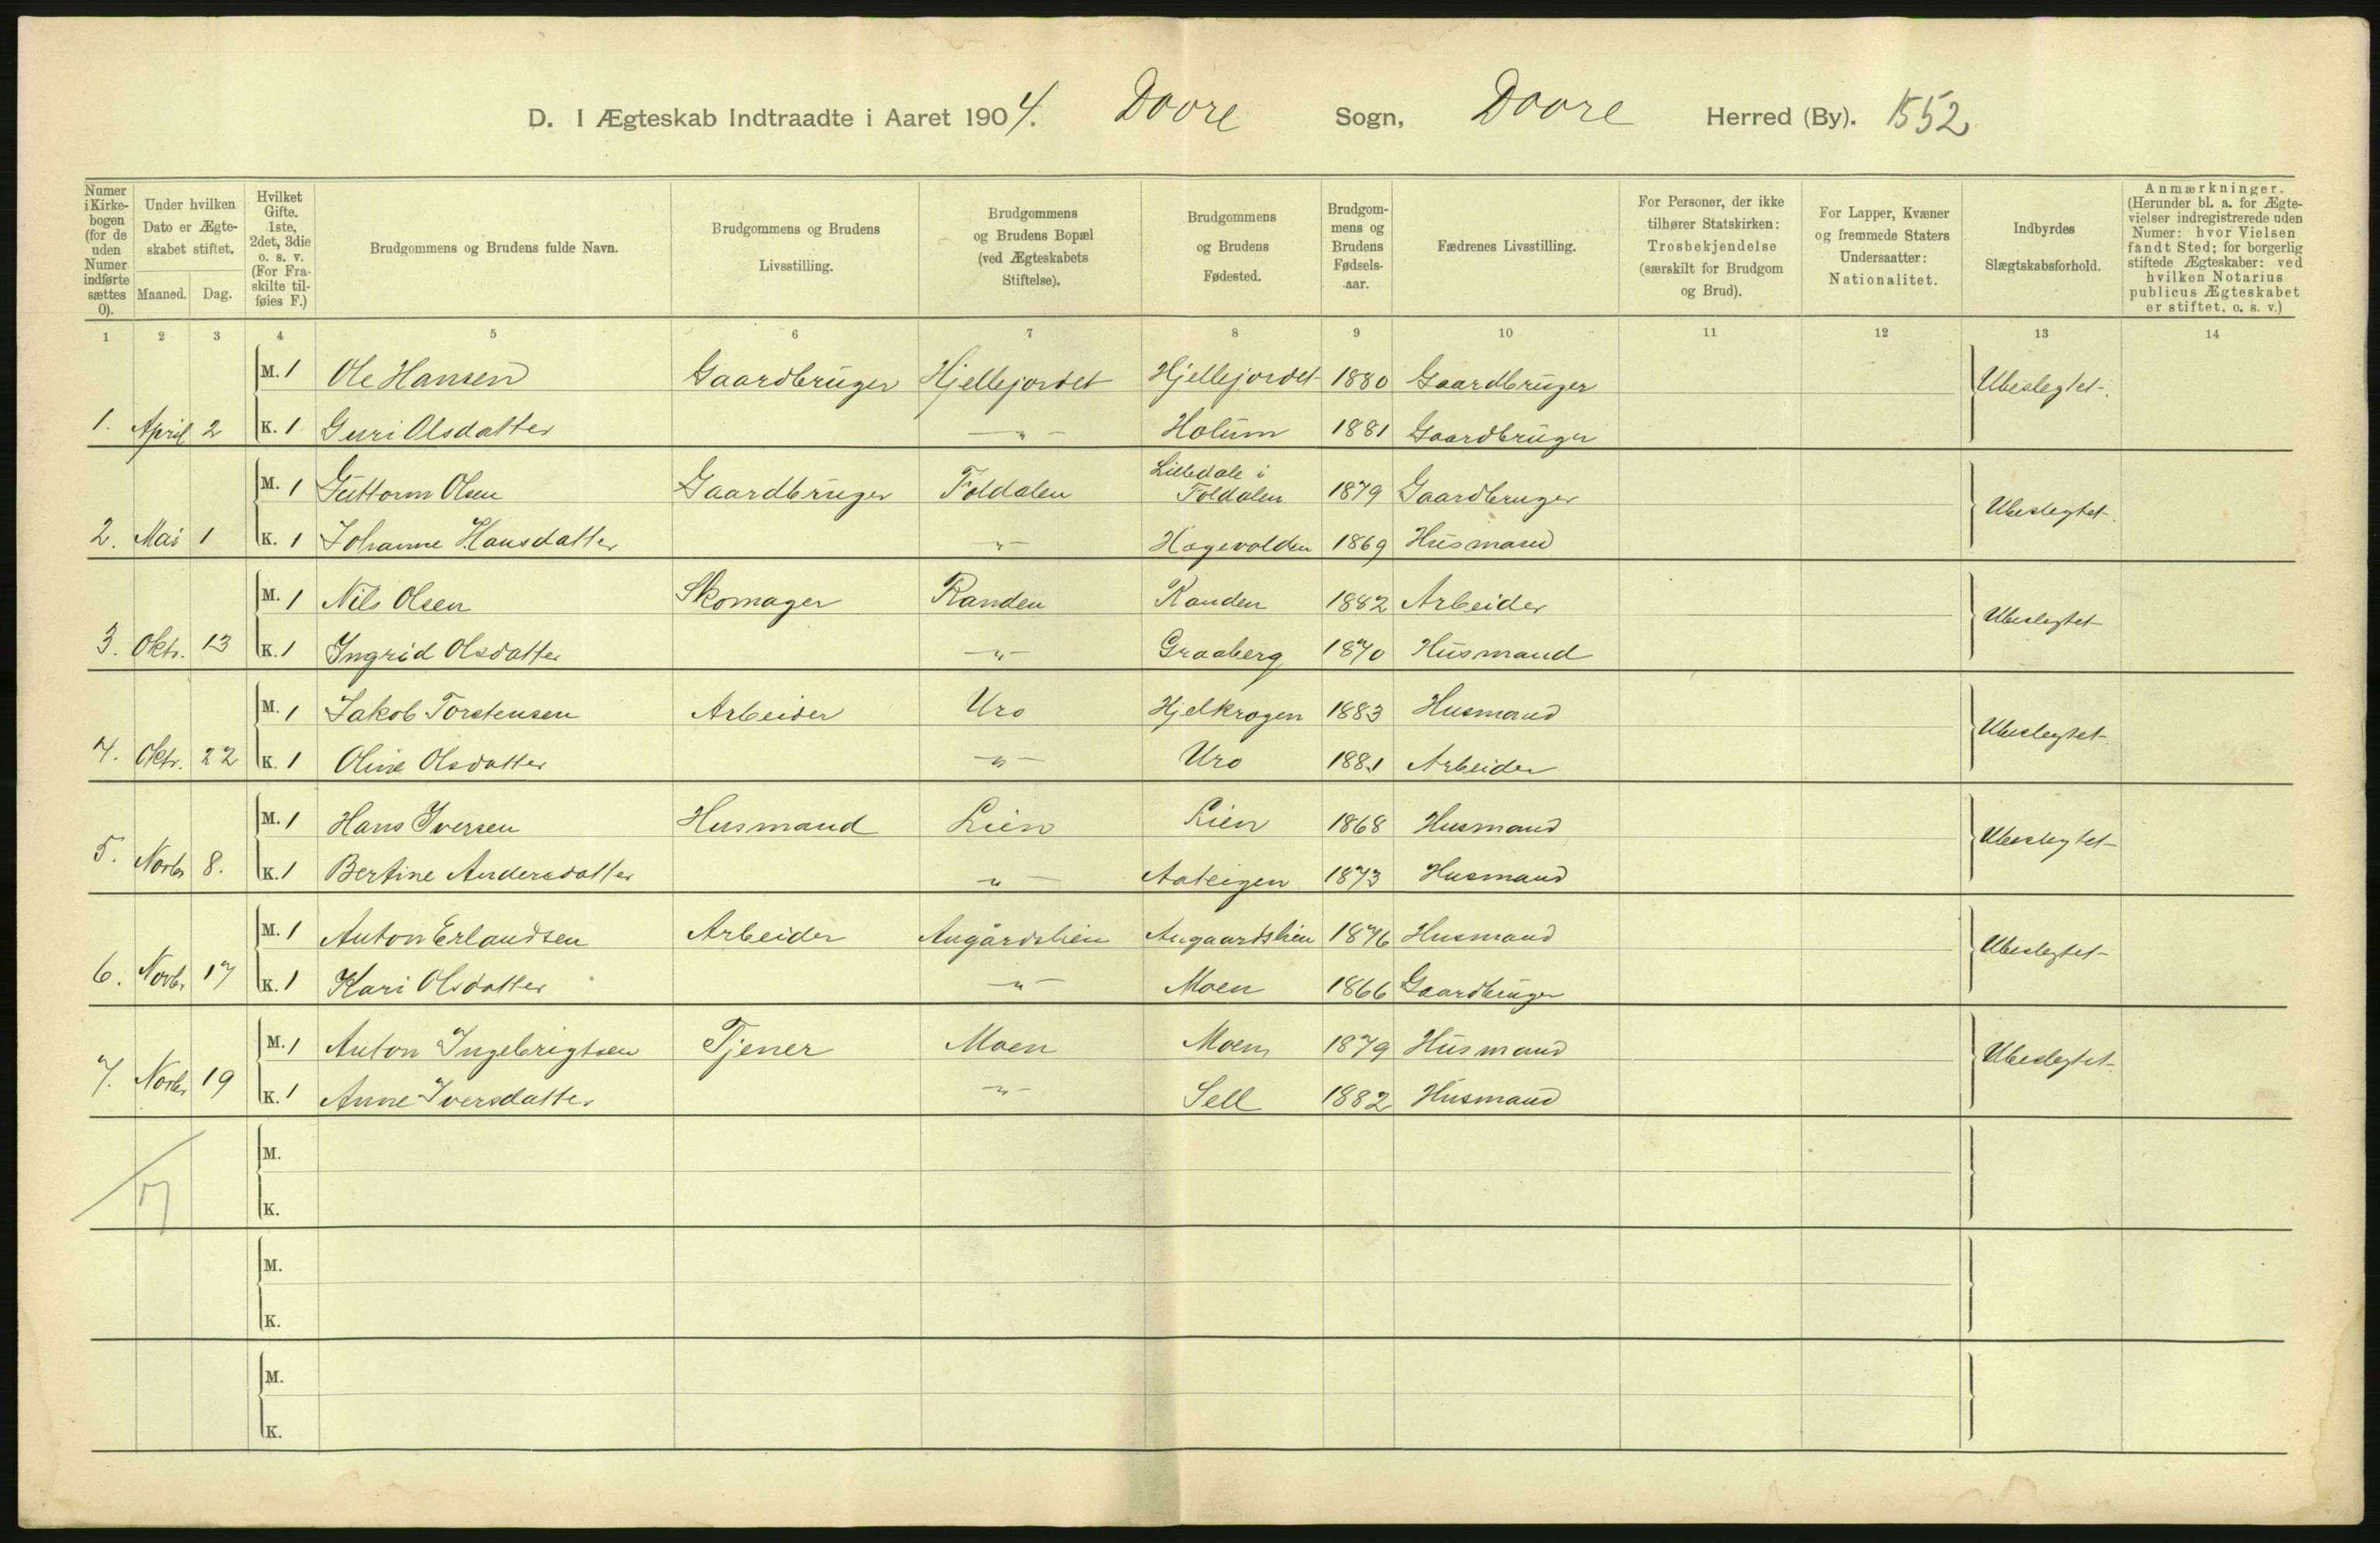 D. I Ægteskab Indtraadte i Aaret 1904. Dovre Sogn, Dovre Herred (By). 1552
Numer i Kirke-bogen (for de uden Numer indførte sættes 0).
Under hvilken Dato er Ægte-skabet stiftet.
Maaned. Dag.
Hvilket Gifte. 1ste, 2det, 3die o. s. v. (For Fra-skilte til-føies F.)
Brudgommens og Brudens fulde Navn.
Brudgommens og Brudens Livsstilling.
Brudgommens og Brudens Bopæl (ved Ægteskabets Stiftelse).
Brudgommens og Brudens Fødested.
Brudgom-mens og Brudens Fødsels-aar.
Fædrenes Livsstilling.
For Personer, der ikke tilhører Statskirken: Trosbekjendelse (særskilt for Brudgom og Brud).
For Lapper, Kvæner og fremmede Staters Undersaatter: Nationalitet.
Indbyrdes Slægtskabsforhold.
Anmærkninger. (Herunder bl. a. for Ægte-vielser indregistrerede uden Numer: hvor Vielsen fandt Sted; for borgerlig stiftede Ægteskaber: ved hvilken Notarius publicus Ægteskabet er stiftet, o. s. v.)
1 2 3 4 5 6 7 8 9 10 11 12 13 14
M. 1 Ole Hansen Gaardbruger Hjellejordet Hjellejordet 1880 Gaardbruger Ubeslegtet.
1. April 2 K. 1 Guri Olsdatter —"— Holum 1881 Gaardbruger
M. 1 Guttorm Olsen Gaardbruger Foldalen Lilledale i Foldalen 1879 Gaardbruger Ubeslegtet.
2. Mai 1 K. 1 Johanne Hansdatter —"— Hagevolden 1869 Husmand
M. 1 Nils Olsen Skomager Randen Randen 1882 Arbeider Ubeslegtet
3. Oktr. 13 K. 1 Ingrid Olsdatter —"— Graaberg 1870 Husmand
M. 1 Jakob Torstensen Arbeider Uro Hjelkrogen 1883 Husmand Ubeslegtet
4. Oktr. 22 K. 1 Oline Olsdatter —"— Uro 1881 Arbeider
M. 1 Hans Iversen Husmand Lien Lien 1868 Husmand Ubeslegtet
5. Novbr 8. K. 1 Bertine Andersdatter —"— Aateigen 1873 Husmand
M. 1 Anton Erlandsen Arbeider Angårdslien Angaardslien 1876 Husmand Ubeslegtet
6. Novbr 17 K. 1 Kari Olsdatter —"— Moen 1866 Gaardbruger
M. 1 Anton Ingebrigtsen Tjener Moen Moen 1879 Husmand Ubeslegtet.
7. Novbr 19 K. 1 Anne Iversdatter —"— Sell 1882 Husmand
M.
7
K.
M.
K.
M.
K.